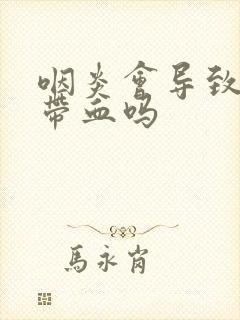 咽炎會导致
帶血吗
馬永肖